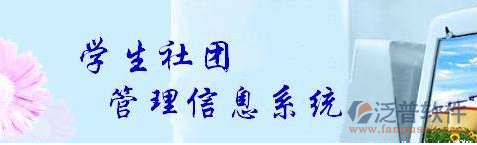 学生社团
管理信息系统
泛普软件